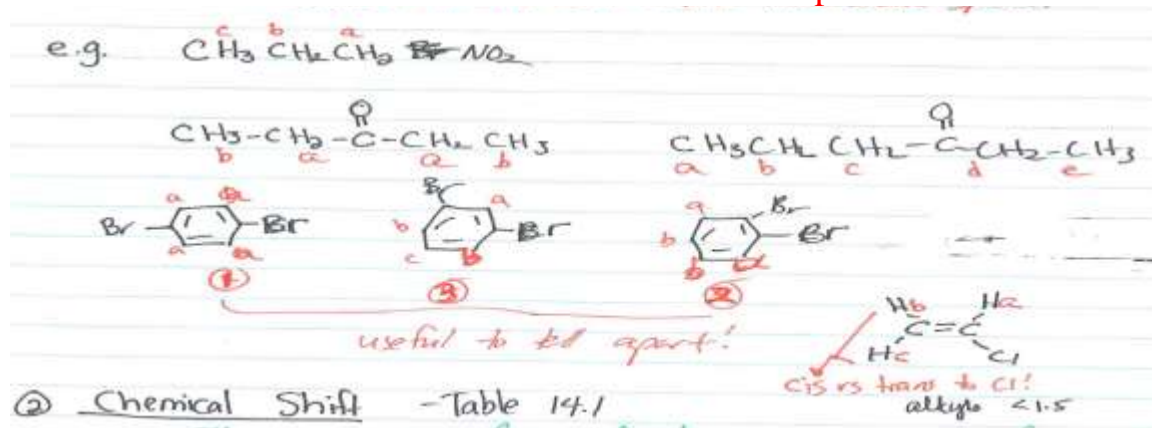 c b a
e.g. CH3 CH2 CH2 NO2
O
CH3-CH2-C-CH2 CH3
b a a b
O
CH3CH2 CH2-C-CH2-CH3
a b c d e
a a
Br Br
a a
①
Br a
b Br
c b
③
a Br
b Br
b a
②
useful to tell apart!
Hb Ha
C=C
Hc Cl
cis vs trans to Cl!
② Chemical Shift - Table 14.1
alkyls <1.5